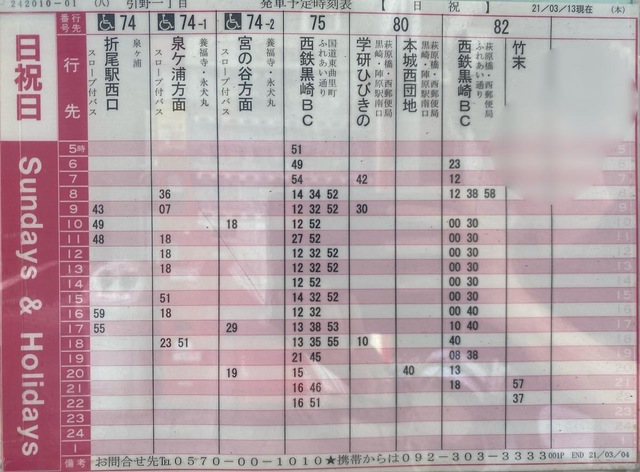 242010-01 (八) 引野一丁目 発車予定時刻表 【 日 祝 】 21/03/13現在 (木)
日祝日
Sundays & Holidays
行先番号 74 74-1 74-2 75 80 82
行先
泉ヶ浦
折尾駅西口
スロープ付バス
養福寺・永犬丸
泉ケ浦方面
スロープ付バス
養福寺・永犬丸
宮の谷方面
スロープ付バス
国道東曲里町
ふれあい通り
西鉄黒崎BC
萩原橋・西郵便局
黒崎・陣原駅南口
学研ひびきの
萩原橋・西郵便局
黒崎・陣原駅南口
本城西団地
萩原橋・西郵便局
ふれあい通り
西鉄黒崎BC
竹末
5時 51
6 49 23
7 54 42 12
8 36 14 34 52 12 38 58
9 43 07 12 32 52 30
10 49 18 12 52 00 30
11 48 18 27 52 00 30
12 18 12 32 52 00 30
13 18 12 32 52 00 30
14 12 52 00 30
15 51 14 32 52 00 30
16 59 18 12 32 00 40
17 55 29 13 38 53 10 40
18 23 51 13 35 55 10 40
19 21 45 08 38
20 19 15 40 13
21 16 46 18 57
22 16 51 37
23
24
1
備考 お問合せ先℡0570-00-1010★携帯からは092-303-3333 001P END 21/03/04